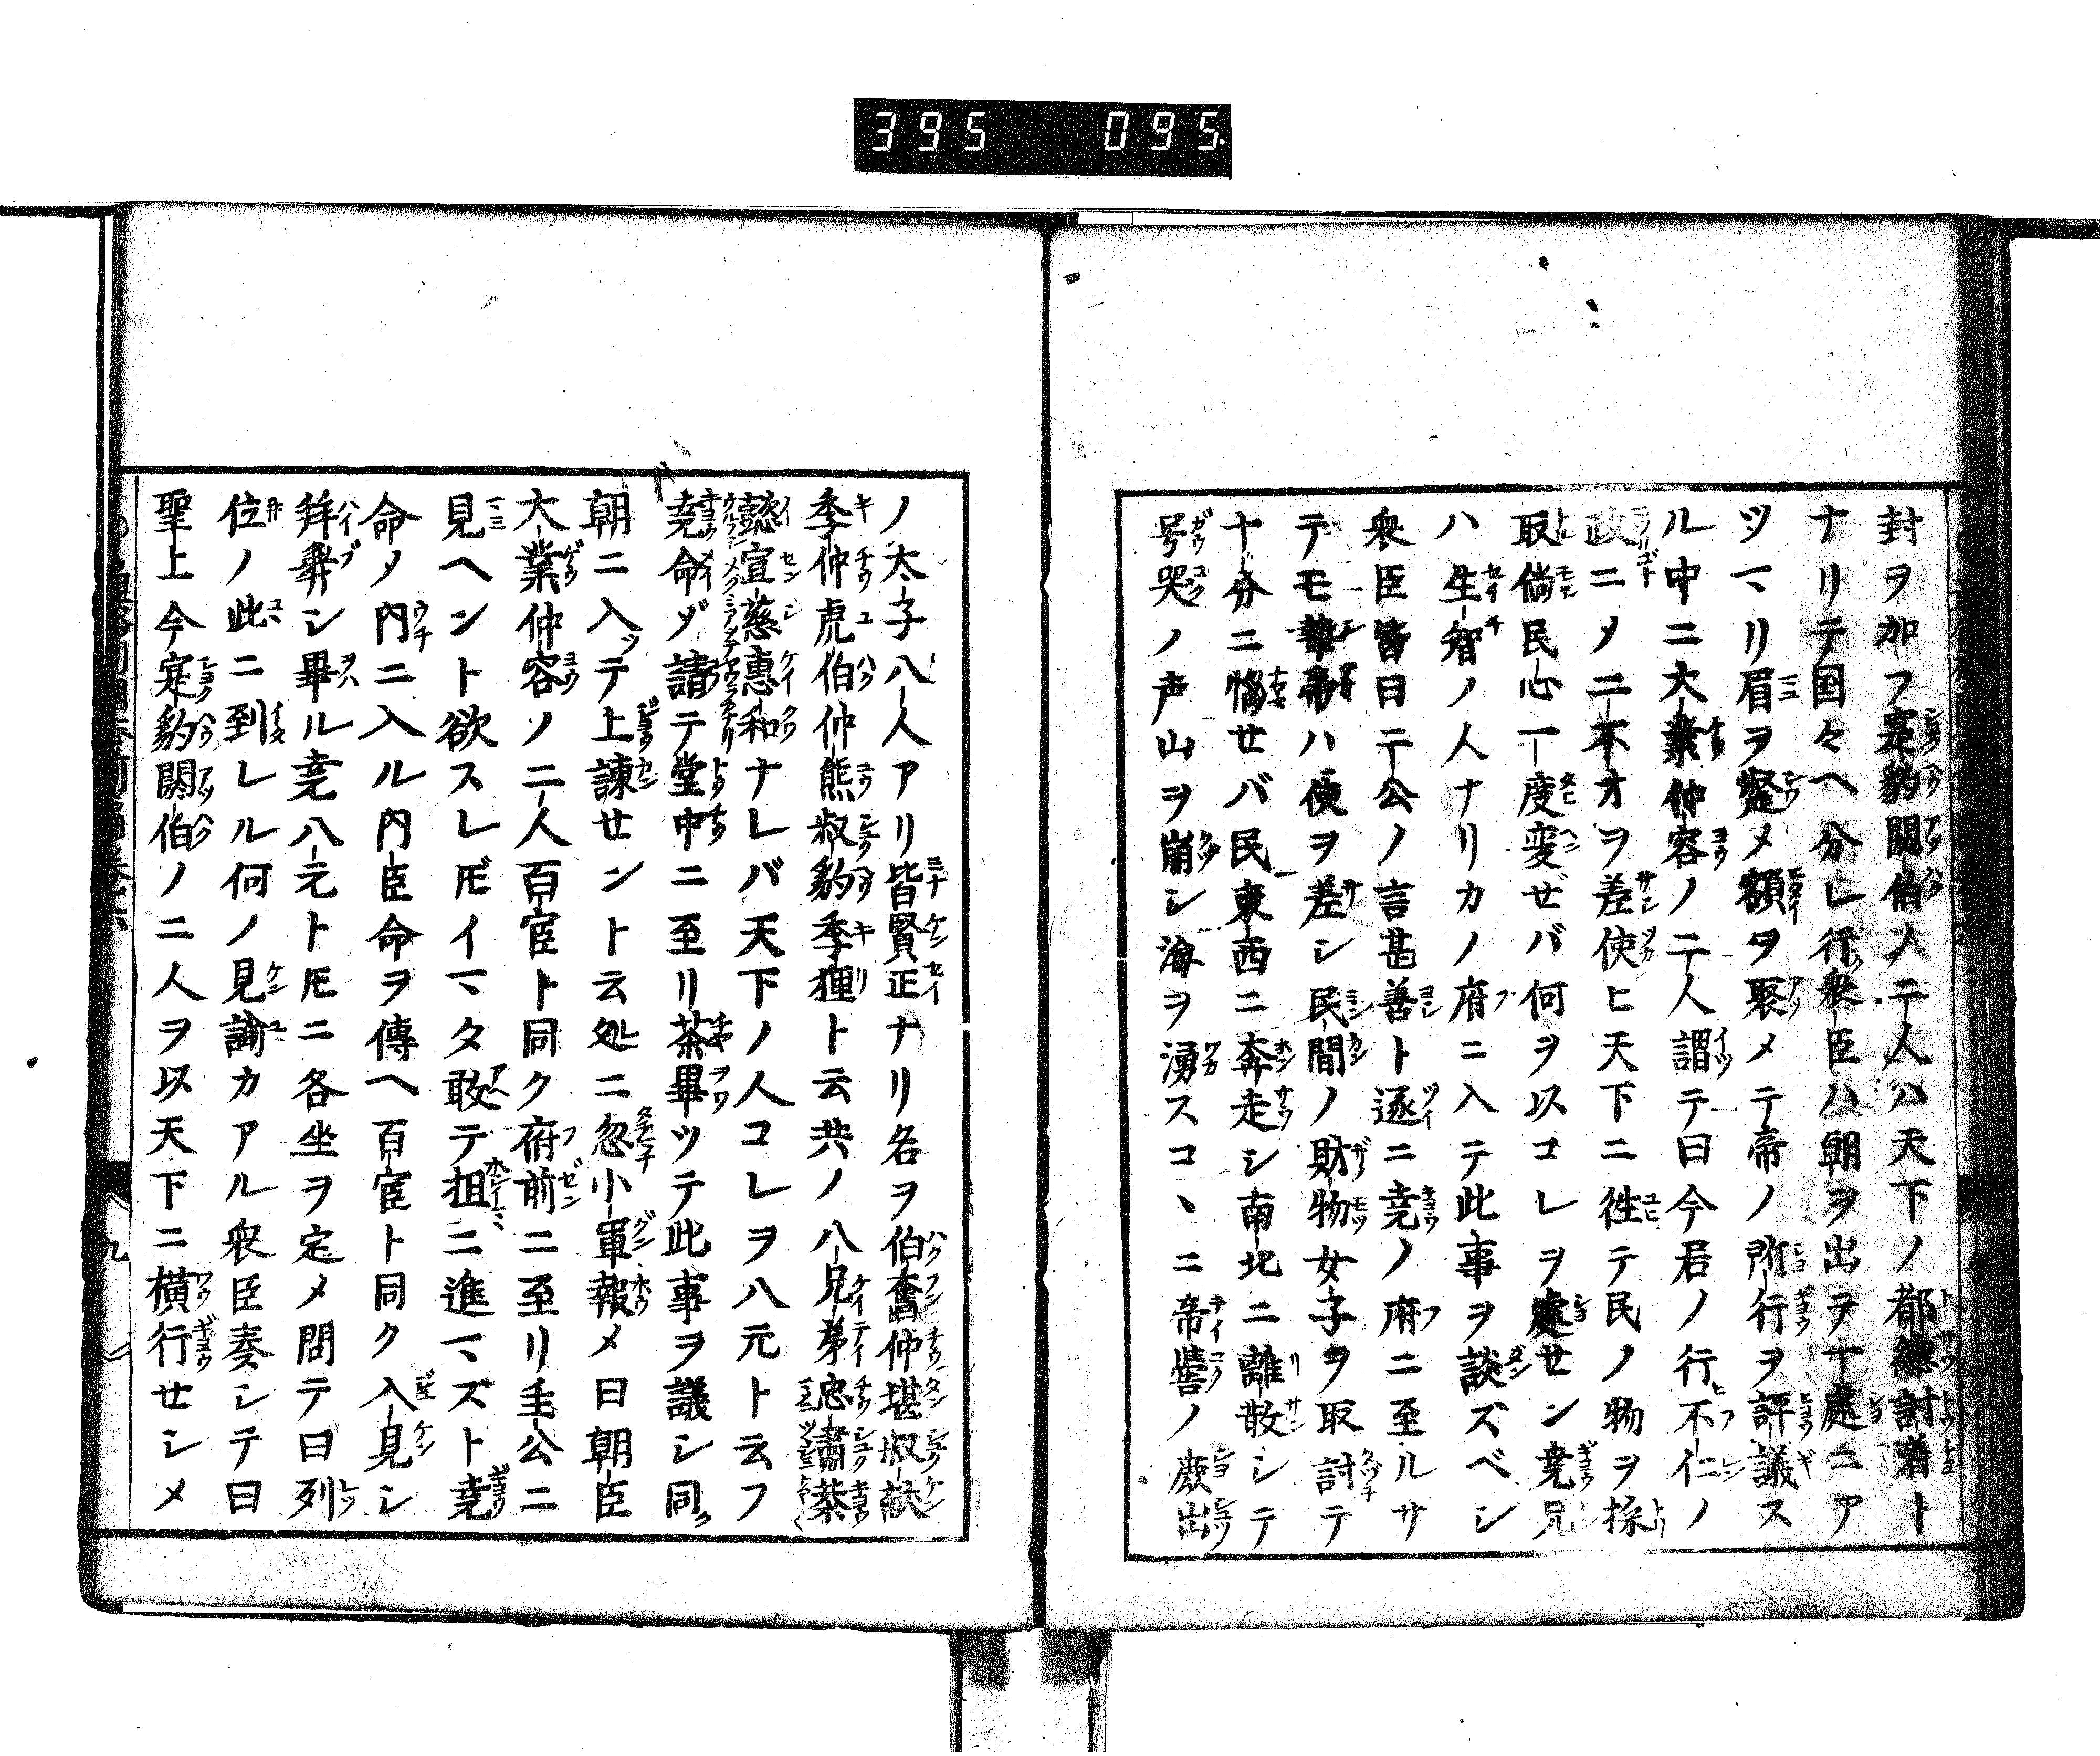 395 095
封ヲ加フ寔豹閼伯ノ二人ハ天下ノ都總討着ト
ナリテ国々ヘ分レ行衆臣ハ朝ヲ出ヲ一處ニア
ツマリ眉ヲ蹙メ額ヲ聚メテ帝ノ所行ヲ評議ス
ル中ニ大業仲容ノ二人謂テ曰今君ノ行不仁ノ
政ニメ二不才ヲ差使ヒ天下ニ徃テ民ノ物ヲ採
取倘民心一度変ゼバ何ヲ以コレヲ處セン尭兄
ハ生智ノ人ナリカノ府ニ入テ此事ヲ談ズベシ
衆臣皆曰二公ノ言甚善ト逐ニ尭ノ府ニ至ルサ
テモ摯帝ハ使ヲ差シ民間ノ財物女子ヲ取討テ
十分ニ惱セバ民東西ニ奔走シ南北ニ離散シテ
号哭ノ声山ヲ崩シ海ヲ湧スコヽニ帝嚳ノ庶出
ノ太子八人アリ皆賢正ナリ名ヲ伯奮仲堪叔献
季仲虎伯仲熊叔豹季狸ト云共ノ八兄弟忠肅恭
懿宣慈惠和ナレバ天下ノ人コレヲ八元ト云フ
尭命ヅ請テ堂中ニ至リ茶畢ツテ此事ヲ議シ同ク
朝ニ入ッテ上諫せント云処ニ忽小軍報メ曰朝臣
大業仲容ノ二人百官ト同ク府前ニ至リ王公ニ
見ヘント欲スレ𪜈イマタ敢デ徂ニ進マズト尭
命メ内ニ入ル内臣命ヲ傳ヘ百官ト同ク入見シ
拜舞シ畢ル尭八元ト𪜈ニ各坐ヲ定メ問テ曰列
位ノ此ニ到レル何ノ見諭カアル衆臣奏シテ曰
聖上今寔豹閼伯ノ二人ヲ以天下ニ横行せシメ
九